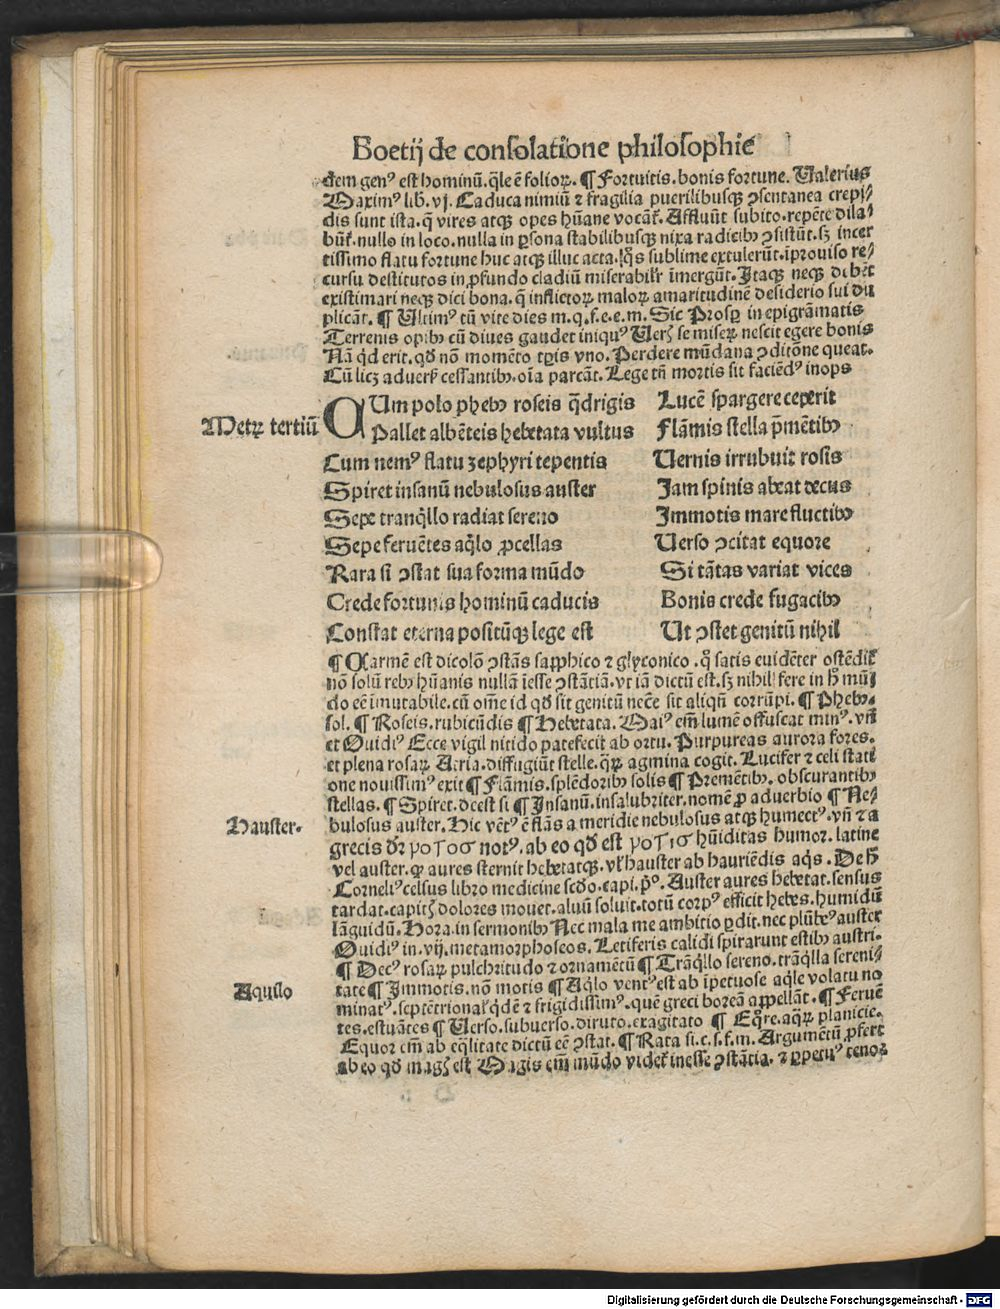 Boetij de consolatione philosophie
dem genꝰ est hominū. q̄le ē folioꝝ. ¶ Fortuitis. bonis fortune. Ualerius
Maximꝰ lib. vj. Caduca nimiū ⁊ fragilia puerilibusqꝫ ↄsentanea crepi⸗
dis sunt ista. q̄ vires atqꝫ opes hūane vocāt̉. Affluūt subito. repēte dila⸗
būt̉. nullo in loco. nulla in ꝑsona stabilibusqꝫ nixa radicibꝰ ↄsistūt. sꝫ incer
tissimo flatu fortune huc atqꝫ illuc acta. q̊s sublime extulerūt. īprouiso re⸗
cursu destitutos in ꝓfundo cladiū miserabilr̉ īmergūt. Itaqꝫ neqꝫ debēt
existimari neqꝫ dici bona. q̄ inflictoꝝ maloꝝ amaritudinē desiderio sui du
plicāt. ¶ Ultimꝰ tū vite dies m. q. f. e. e. m. Sic Prosꝑ in epigrāmatis
Terrenis opibꝰ cū diues gaudet iniquꝰ Uerꝫ se miseꝝ nescit egere bonis
Nā qd̓ erit. qđ nō momēto tꝑis vno. Perdere mūdana ↄditōne queat.
Cū licꝫ aduerſ̉ cessantibꝰ. oīa parcāt. Lege tn̄ mortis sit faciēdꝰ inops
Metꝝ tertiū
CUm polo phebꝰ roseis q̄drigis Lucē spargere ceperit
Pallet albēteis hebetata vultus Flāmis stella p̄mētibꝰ
Cum nemꝰ flatu zephyri tepentis Uernis irrubuit rosis
Spiret insanū nebulosus auster Jam spinis abeat decus
Sepe tranq̇llo radiat sereno Immotis mare fluctibꝰ
Sepe feruētes aq̇lo ꝓcellas Uerso ↄcitat equore
Rara si ↄstat sua forma mūdo Si tātas variat vices
Crede fortunis hominū caducis Bonis crede fugacibꝰ
Constat eterna positūqꝫ lege est Ut ↄstet genitū nihil
¶ Carmē est dicolō ↄstās sapphico ⁊ glyconico. qͦ satis euidēter ostēdit̉
nō solū rebꝰ hūanis nullā īesse ↄstātiā. vt iā dictū est. sꝫ nihil fere in h̄ mū⸗
do eē īmutabile. cū omē id qđ sit genitū necē sit aliqn̄ corrūpi. ¶ Phebꝰ.
sol. ¶ Roseis. rubicūdis ¶ Hebetata. Maiꝰ em̄ lumē offuscat minꝰ. vn̄
et Ouidiꝰ Ecce vigil nitido patefecit ab ortu. Purpureas aurora fores.
et plena rosaꝝ Atria. diffugiūt stelle. qꝝ agmina cogit. Lucifer ⁊ celi stati
one nouissimꝰ exit ¶ Flāmis. splēdoribꝰ solis ¶ Premētibꝰ. obscurantibꝰ
stellas. ¶ Spiret. deest si ¶ Insanū. insalubriter. nomē ꝓ aduerbio ¶ Ne⸗
Hauster.
bulosus auster. Hic vētꝰ ē flās a meridie nebulosus atqꝫ humectꝰ. vn̄ ⁊ a
grecis dr̄ νοτοσ notꝰ. ab eo qđ est νοτισ hūiditas humor. latine
vel auster. qꝛ aures sternit hebetatqꝫ. vl̓ hauster ab hauriēdis aq̇s. De h̄
Corneliꝰ celsus libro medicine scđo. capi. p̊. Auster aures hebetat. sensus
tardat. capitꝫ dolores mouet. aluū soluit. totū corpꝰ efficit hebes. humidū
lāguidū. Hora. in sermonibꝰ Nec mala me ambitio ꝑdit. nec plūbeꝰ auster
Ouidiꝰ in. vij. metamorphoseos. Letiferis calidi spirarunt estibꝰ austri.
¶ Decꝰ rosaꝝ pulchritudo ⁊ ornamētū ¶ Trāq̇llo sereno. trāq̇lla sereni⸗
Aquilo
tate ¶ Immotis. nō motis ¶ Aq̇lo ventꝰ est ab īpetuose aq̇le volatu no
minatꝰ. septētrional̓ q̇dē ⁊ frigidissimꝰ. quē greci boreā appellāt. ¶ Feruē
tes. estuātes ¶ Uerso. subuerso. diruto. exagitato ¶ Eq̊re. aqꝝ planicie.
Equor em̄ ab eq̄litate dictū eē ↄstat. ¶ Rara si. c. s. f. m. Argumētū ꝓfert
ab eo qđ magꝫ est Magis em̄ mūdo videt̉ inesse ↄstātia. ⁊ ꝑpetuꝰ tenoꝛ
Digitalisierung gefördert durch die Deutsche Forschungsgemeinschaft - DFG